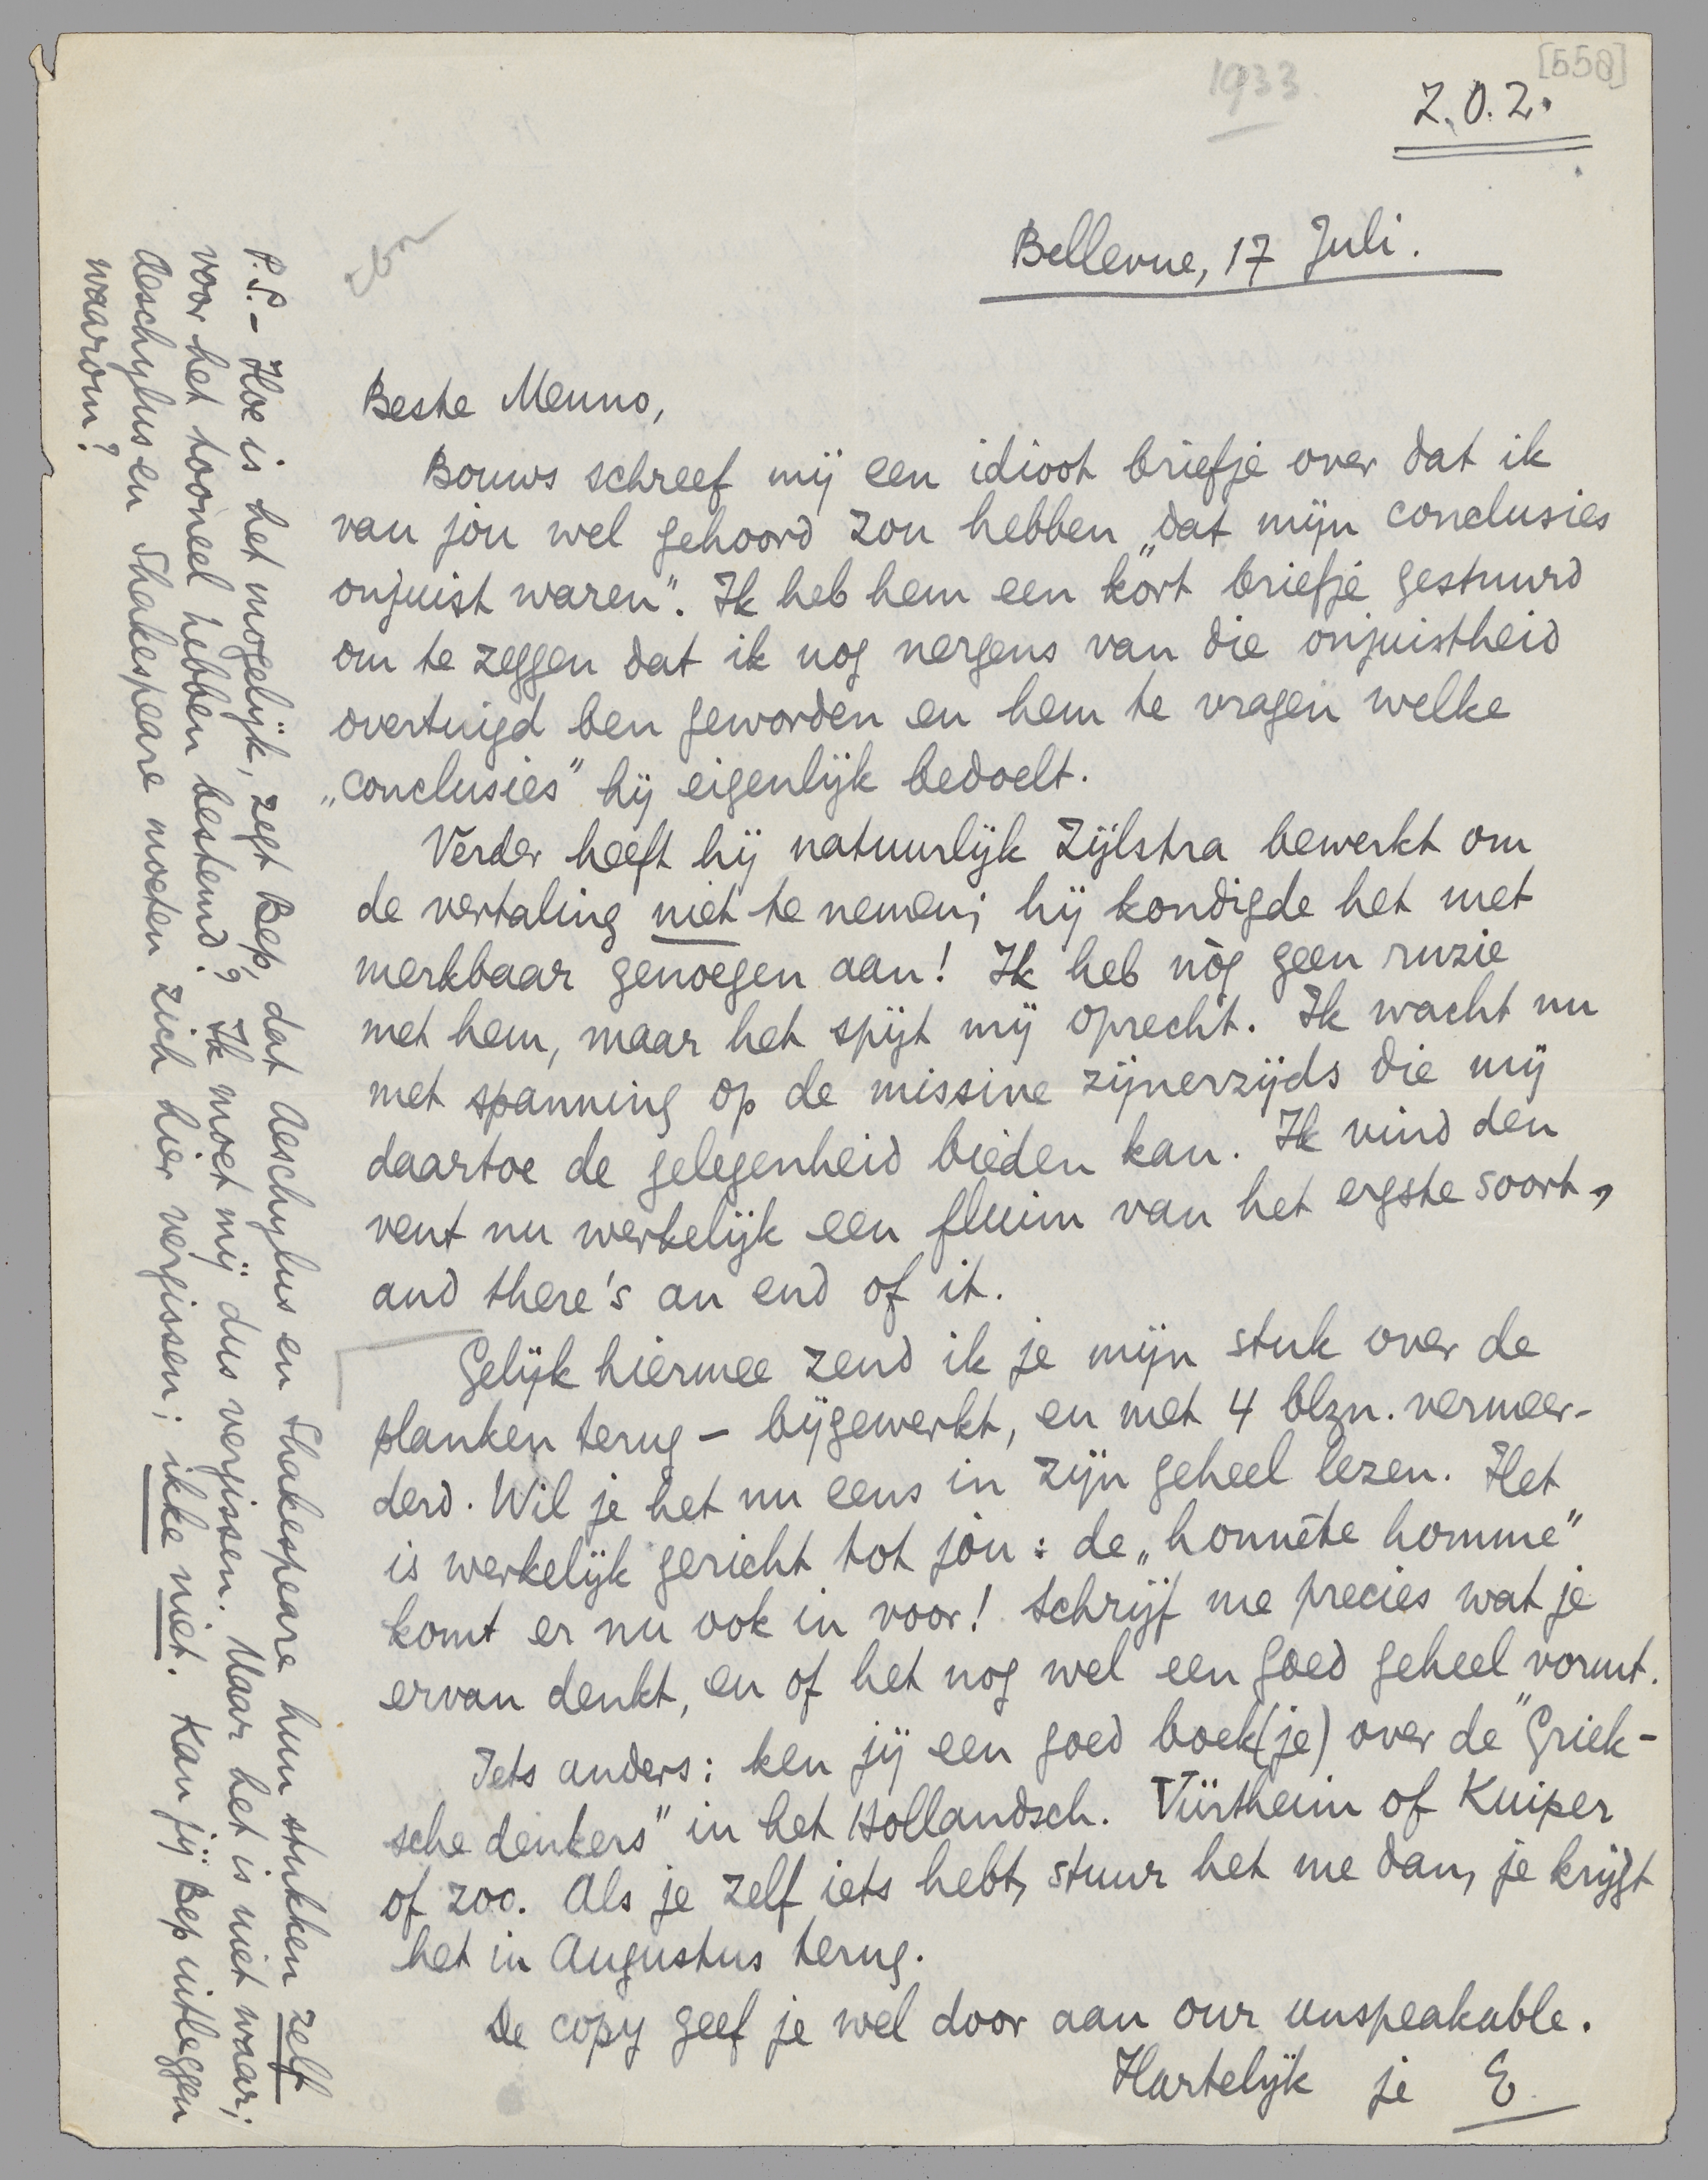 [558]
1933.
Z.O.Z.
Bellevue, 17 Juli.
Beste Menno,
Bouws schreef mij een idioot briefje over dat ik
van jòu wel gehoord zou hebben „dat mijn conclusies
onjuist waren”. Ik heb hem een kort briefje gestuurd
om te zeggen dat ik nog nergens van die onjuistheid
overtuigd ben geworden en hem te vragen welke
„conclusies” hij eigenlijk bedoelt.
Verder heeft hij natuurlijk Zijlstra bewerkt om
de vertaling niet te nemen; hij kondigde het met
merkbaar genoegen aan! Ik heb nòg geen ruzie
met hem, maar het spijt mij oprecht. Ik wacht nu
met spanning op de missive zijnerzijds die mij
daartoe de gelegenheid bieden kan. Ik vind den
vent nu werkelijk een fluim van het ergste soort,
and there's an end of it.
Gelijk hiermee zend ik je mijn stuk over de
planken terug – bijgewerkt, en met 4 blzn. vermeer-
derd. Wil je het nu eens in zijn geheel lezen. Het
is werkelijk gericht tot jòu: de „honnête homme”
komt er nu ook in voor! Schrijf me precies wat je
ervan denkt, en of het nog wel een goed geheel vormt.
Iets anders: ken jij een goed boek(je) over de "Griek-
sche denkers" in het Hollandsch. Vürtheim of Kuiper
of zoo. Als je zelf iets hebt, stuur het me dan, je krijgt
het in Augustus terug.
De copy geef je wel door aan our unspeakable.
Hartelijk je E
P.S. – Hoe is het mogelijk, zegt Bep, dat Aeschylus en Shakespeare hun stukken zelf
voor het tooneel hebben bestemd? Ik moet mij dus vergissen. Maar het is niet waar;
Aeschylus en Shakespeare moeten zich hier vergissen; ikke niet. Kan jij Bep uitleggen
waarom?